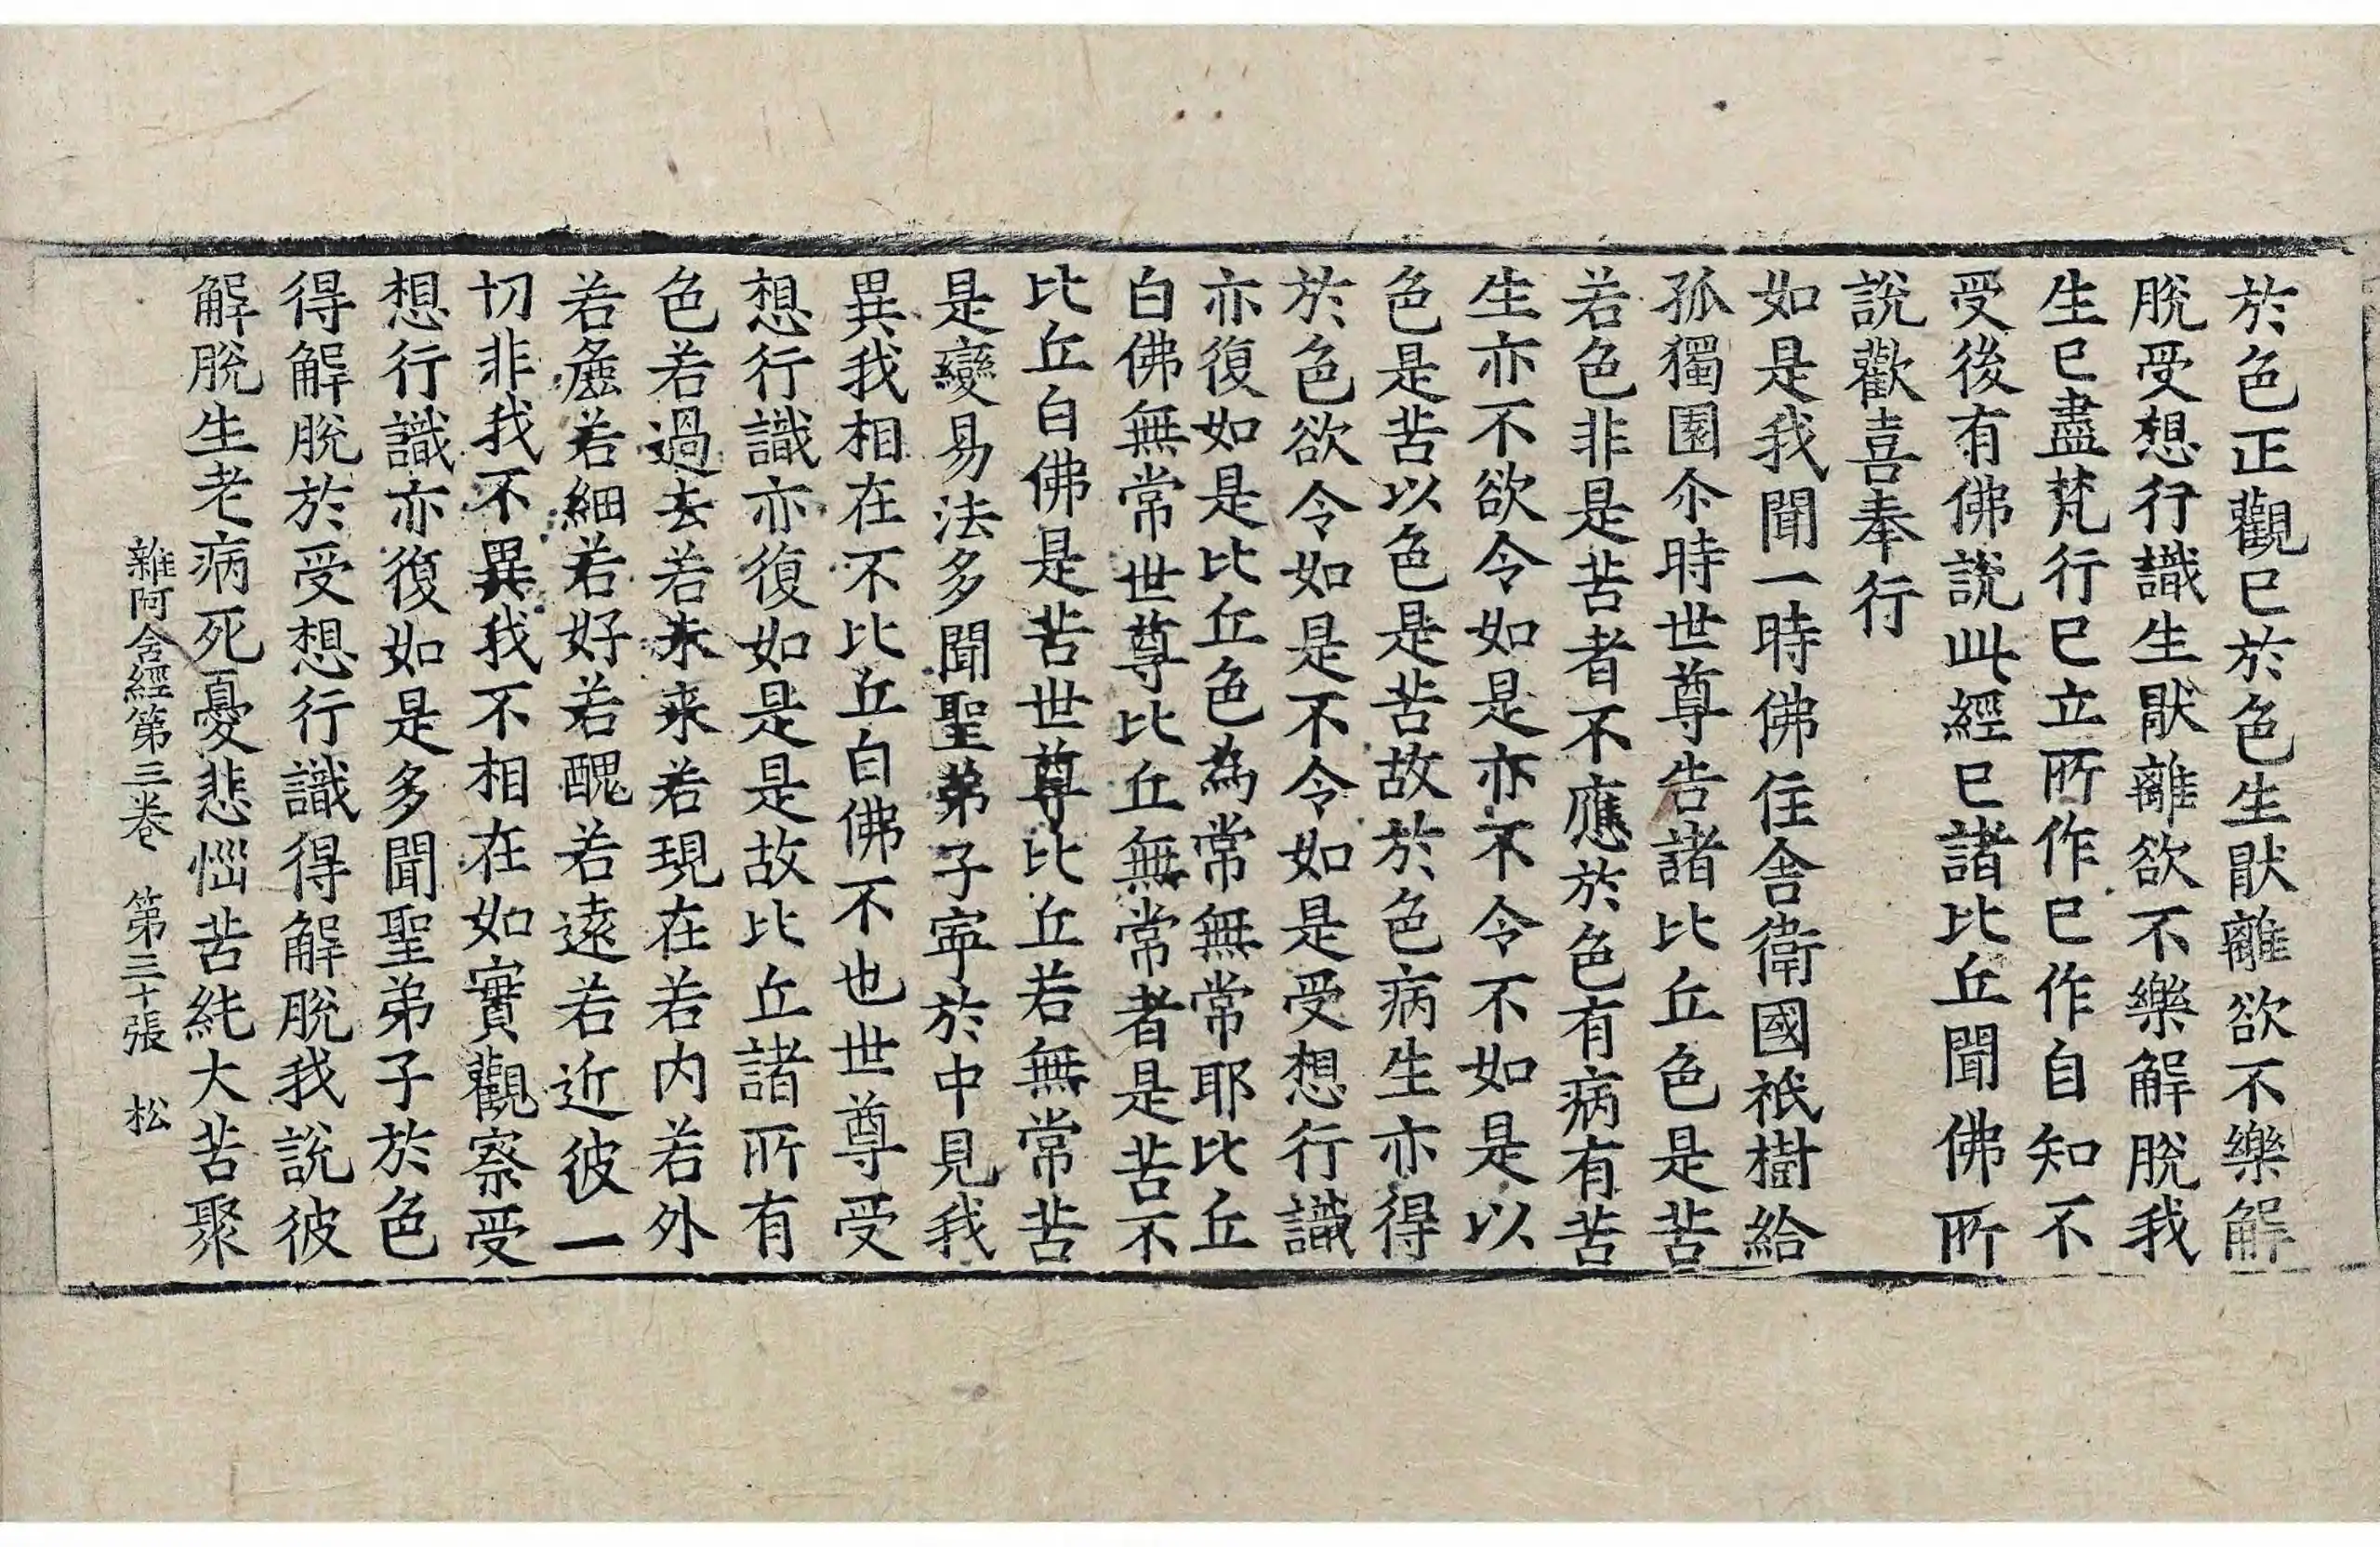 於色正觀已於色生猒離欲不樂解
脫受想行識生猒離欲不樂解脫我
生已盡梵行已立所作已作自知不
受後有佛說此經已諸比丘聞佛所
說歡喜奉行
如是我聞一時佛住舍衛國祇樹給
孤獨園尒時世尊告諸比丘色是苦
若色非是苦者不應於色有病有苦
生亦不欲令如是亦不令不如是以
色是苦以色是苦故於色病生亦得
於色欲令如是不令如是受想行識
亦復如是比丘色為常無常耶比丘
白佛無常世尊比丘無常者是苦不
比丘白佛是苦世尊比丘若無常苦
是變易法多聞聖弟子寧於中見我
異我相在不比丘白佛不也世尊受
想行識亦復如是是故比丘諸所有
色若過去若未来若現在若内若外
若麁若細若好若醜若遠若近彼一
切非我不異我不相在如實觀察受
想行識亦復如是多聞聖弟子於色
得解脫於受想行識得解脫我說彼
解脫生老病死憂悲惱苦純大苦聚
雜阿含經第三卷 第三十張 松